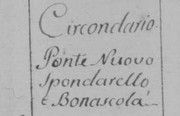 Circondario
Ponte Nuovo
Spondarello
e Bonascola